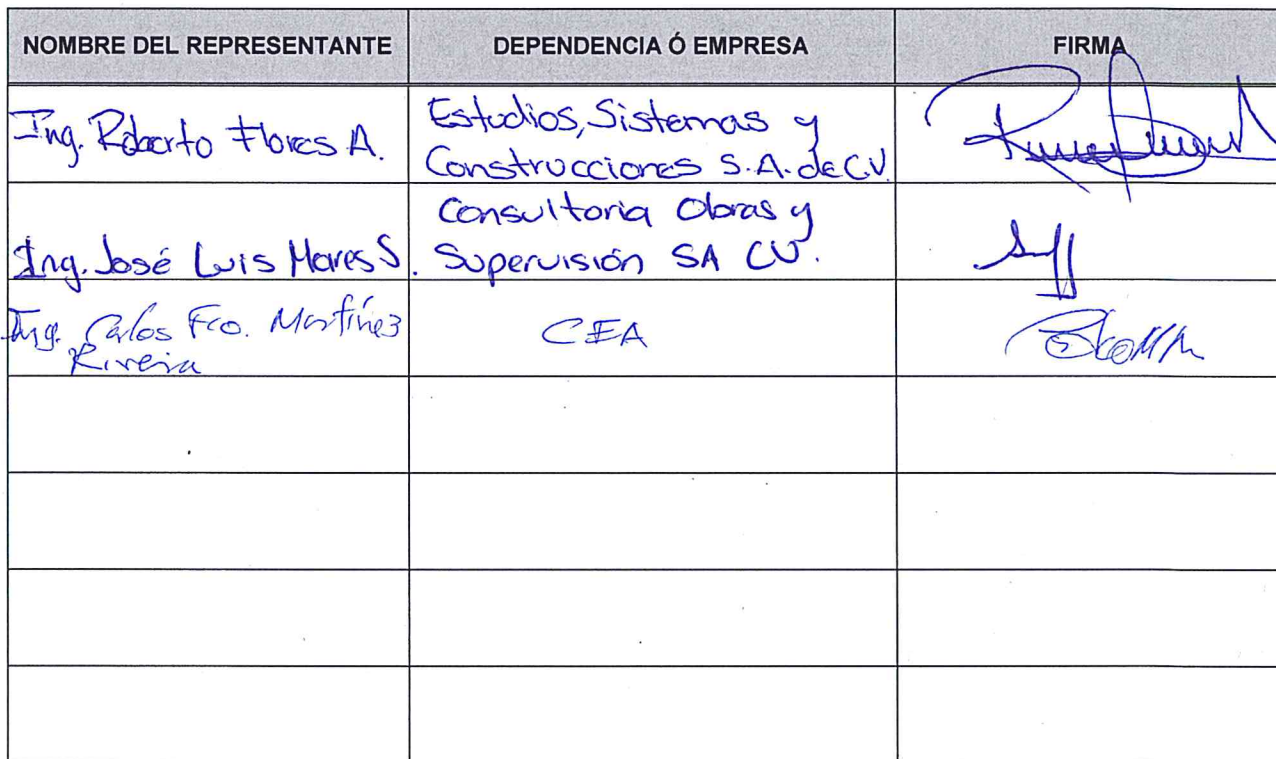 NOMBRE DEL REPRESENTANTE DEPENDENCIA Ó EMPRESA FIRMA
Ing. Roberto Flores A.
Estudios, Sistemas y
Construcciones S.A. de C.V.
Ing. José Luis Mares S.
Consultoria Obras y
Supervisión SA CV.
Ing. Carlos Fco. Martínez
Riveira
CEA